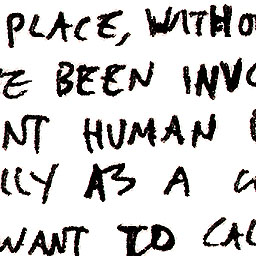 PLACE, WITHO
E BEEN INVO
NT HUMAN
LLY AS A
WANT TO CAL